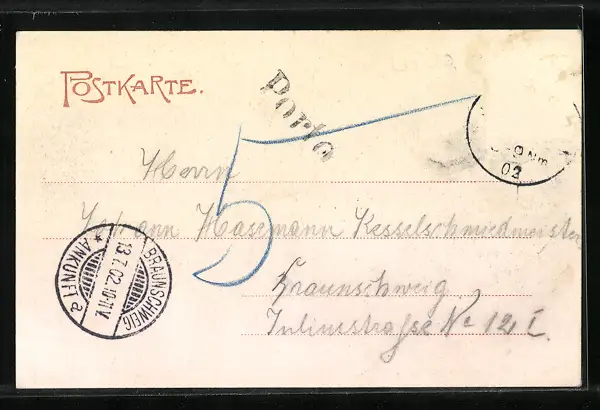 POSTKARTE.
Porto
5
Herrn
Johann Hasemann Kesselschmiedmeister
Braunschweig
Juliusstraße No 12 I.
BRAUNSCHWEIG
13.7.02.10-11V.
* ANKUNFT a.
-9 Nm
02